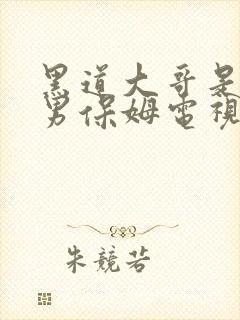 黑道大哥是
男保姆電視
朱競若